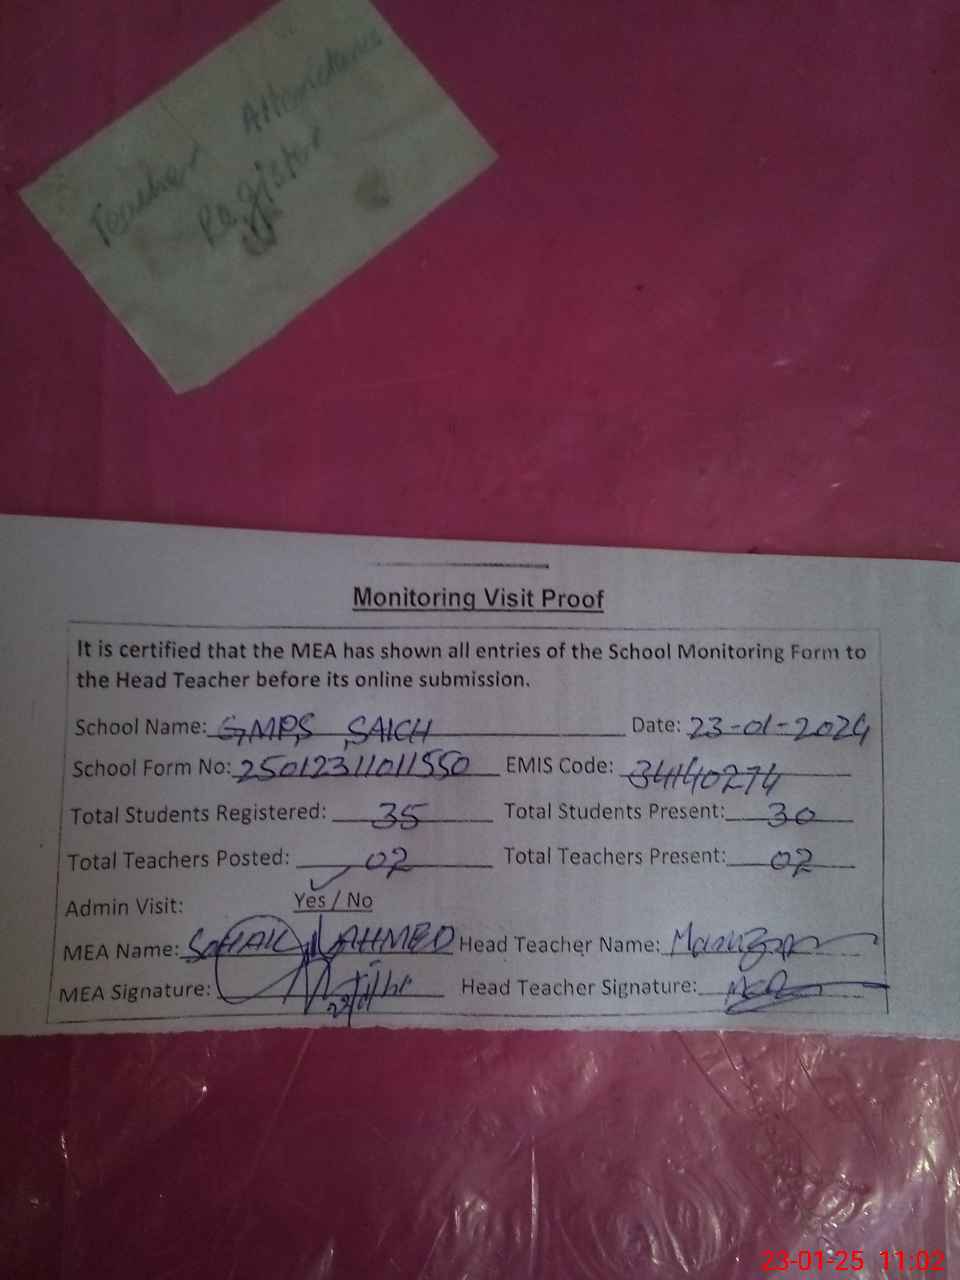 Teacher Attendance
Register
Monitoring Visit Proof
It is certified that the MEA has shown all entries of the School Monitoring Form to
the Head Teacher before its online submission.
School Name: GMPS SAICH Date: 23-01-2024
School Form No: 25012311011550 EMIS Code: 34140274
Total Students Registered: 35 Total Students Present: 30
Total Teachers Posted: 02 Total Teachers Present: 02
Admin Visit: Yes / No
MEA Name: SOHAIL AHMED Head Teacher Name:
MEA Signature: Head Teacher Signature:
23-01-25 11:02